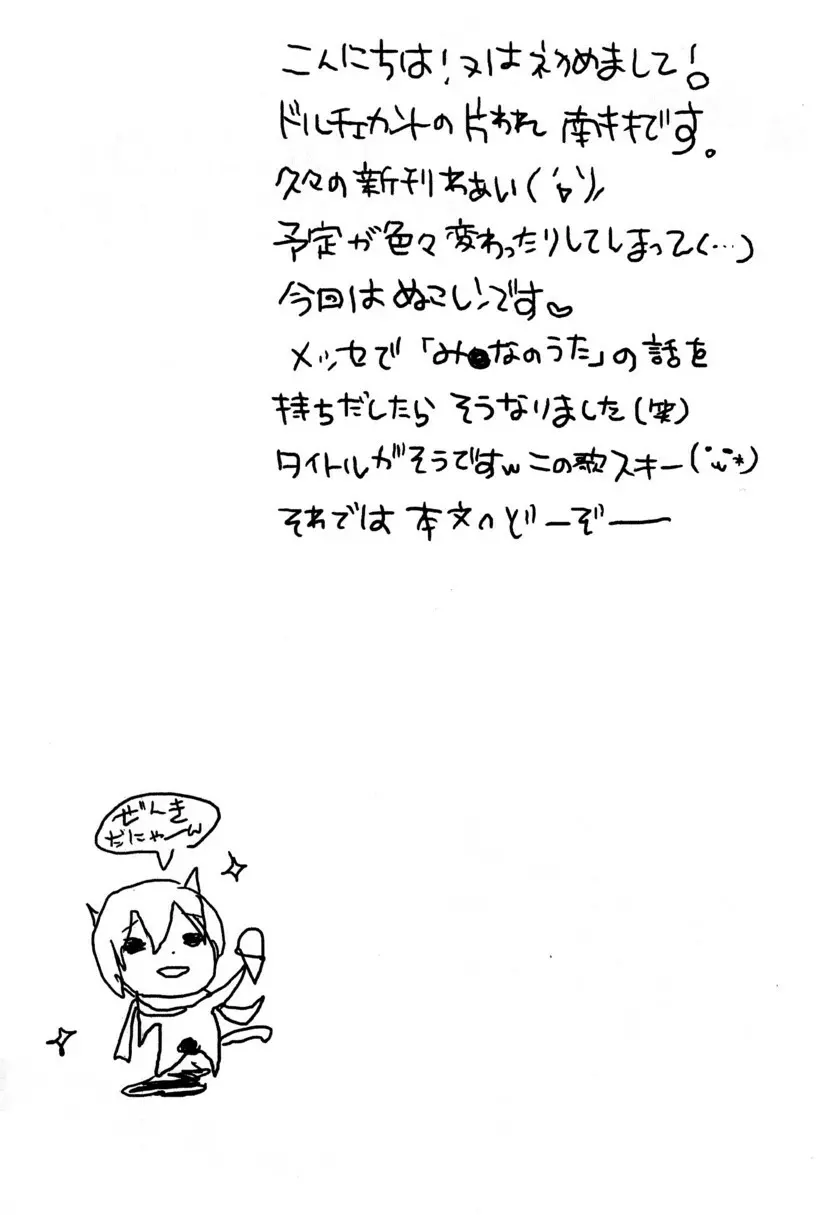 こんにちは!又はネ刀めまして!。
ドルチェカントの片われ 南キキです。
久々の新刊わあい(´▽`)ノ
予定が色々変わったりしてしまって(…)
今回はぬこレンです♡
メッセで「み●なのうた」の話を
持ちだしたら そうなりました(笑)
タイトルがそうですwこの歌スキー(´ω`*)
それでは 本文へどーぞー
ぜんき
だにゃーw